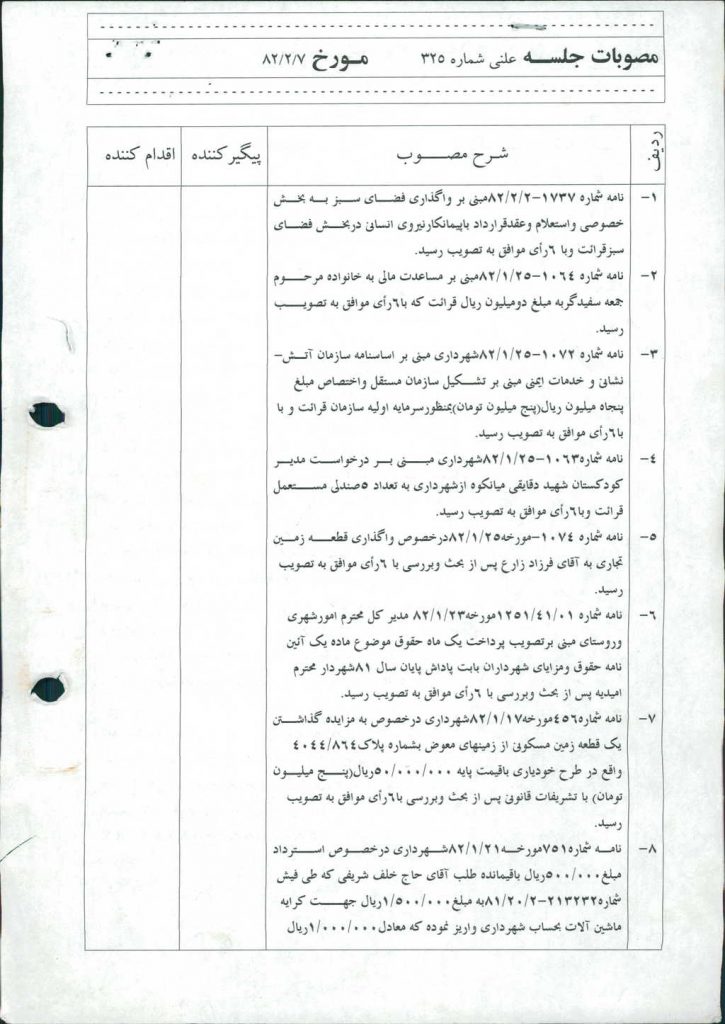 مصوبات جلسـه علنی شماره ۳۲۵ مـورخ ۸۲/۲/۷
ردیف شـرح مصـــوب پیگیرکننده اقدام کننده
۱- نامه شماره ۱۷۳۷-۸۲/۲/۲مبنی بر واگذاری فضـای سبز بـه بخش
خصوصی واستعلام وعقدقرارداد باپیمانکارنیروی انسانی دربخش فضای
سبزقرائت وبا ۶رأی موافق به تصویب رسید.
۲- نامه شماره ۱۰۶۴-۸۲/۱/۲۵مبنی بر مساعدت مالی به خانواده مرحـوم
جمعه سفیدگربه مبلغ دومیلیون ریال قرائت که با۶رأی موافق به تصویـب
رسید.
۳- نامه شماره ۱۰۷۲-۸۲/۱/۲۵شهرداری مبنی بر اساسنامه سازمان آتـش-
نشانی و خدمات ایمنی مبنی بر تشـکیل سازمان مستقل واختصاص مبلغ
پنجاه میلیون ریال(پنج میلیون تومان)بمنظورسرمایه اولیه سازمان قرائت و با
با۶رأی موافق به تصویب رسید.
۴- نامه شماره۱۰۶۳-۸۲/۱/۲۵شهرداری مبـنی بـر درخواست مدیـر
کودکستان شهید دقایقی میانکوه ازشهرداری به تعداد ۵صندلی مسـتعمل
قرائت وبا۶رأی موافق به تصویب رسید.
۵- نامه شماره ۱۰۷۴-مورخه۸۲/۱/۲۵درخصوص واگذاری قطعـه زمین
تجاری به آقای فرزاد زارع پس از بحث وبررسی با ۶رأی موافق به تصویب
رسید.
۶- نامه شماره ۱۲۵۱/۴۱/۰۱مورخه۸۲/۱/۲۳ مدیر کل محترم امورشهری
وروستای مبنی برتصویب پرداخت یک ماه حقوق موضوع ماده یک آئین
نامه حقوق ومزایای شهرداران بابت پاداش پایان سال ۸۱شهردار محترم
امیدیه پس از بحث وبررسی با ۶رأی موافق به تصویب رسید.
۷- نامه شماره۴۵۶مورخه۸۲/۱/۱۷شهرداری درخصوص به مزایده گذاشتن
یک قطعه زمین مسکونی از زمینهای معوض بشماره پلاک۴۰۴۴/۸۶۴
واقع در طرح خودیاری باقیمت پایه ۵۰/۰۰۰/۰۰۰ریال(پنـج میلیـون
تومان) با تشریفات قانونی پس از بحث وبررسی با۶رأی موافق به تصویب
رسید.
۸- نامـه شماره۷۵۱مورخـه۸۲/۱/۲۱شهرداری درخصوص اسـترداد
مبلغ۵۰۰/۰۰۰ریال باقیمانده طلب آقای حاج خلف شریفی که طی فیش
شماره۲۱۳۲۳۲-۸۱/۲۰/۲به مبلغ۱/۵۰۰/۰۰۰ریال جهـت کرایه
ماشین آلات بحساب شهرداری واریز نموده که معادل۱/۰۰۰/۰۰۰ریال